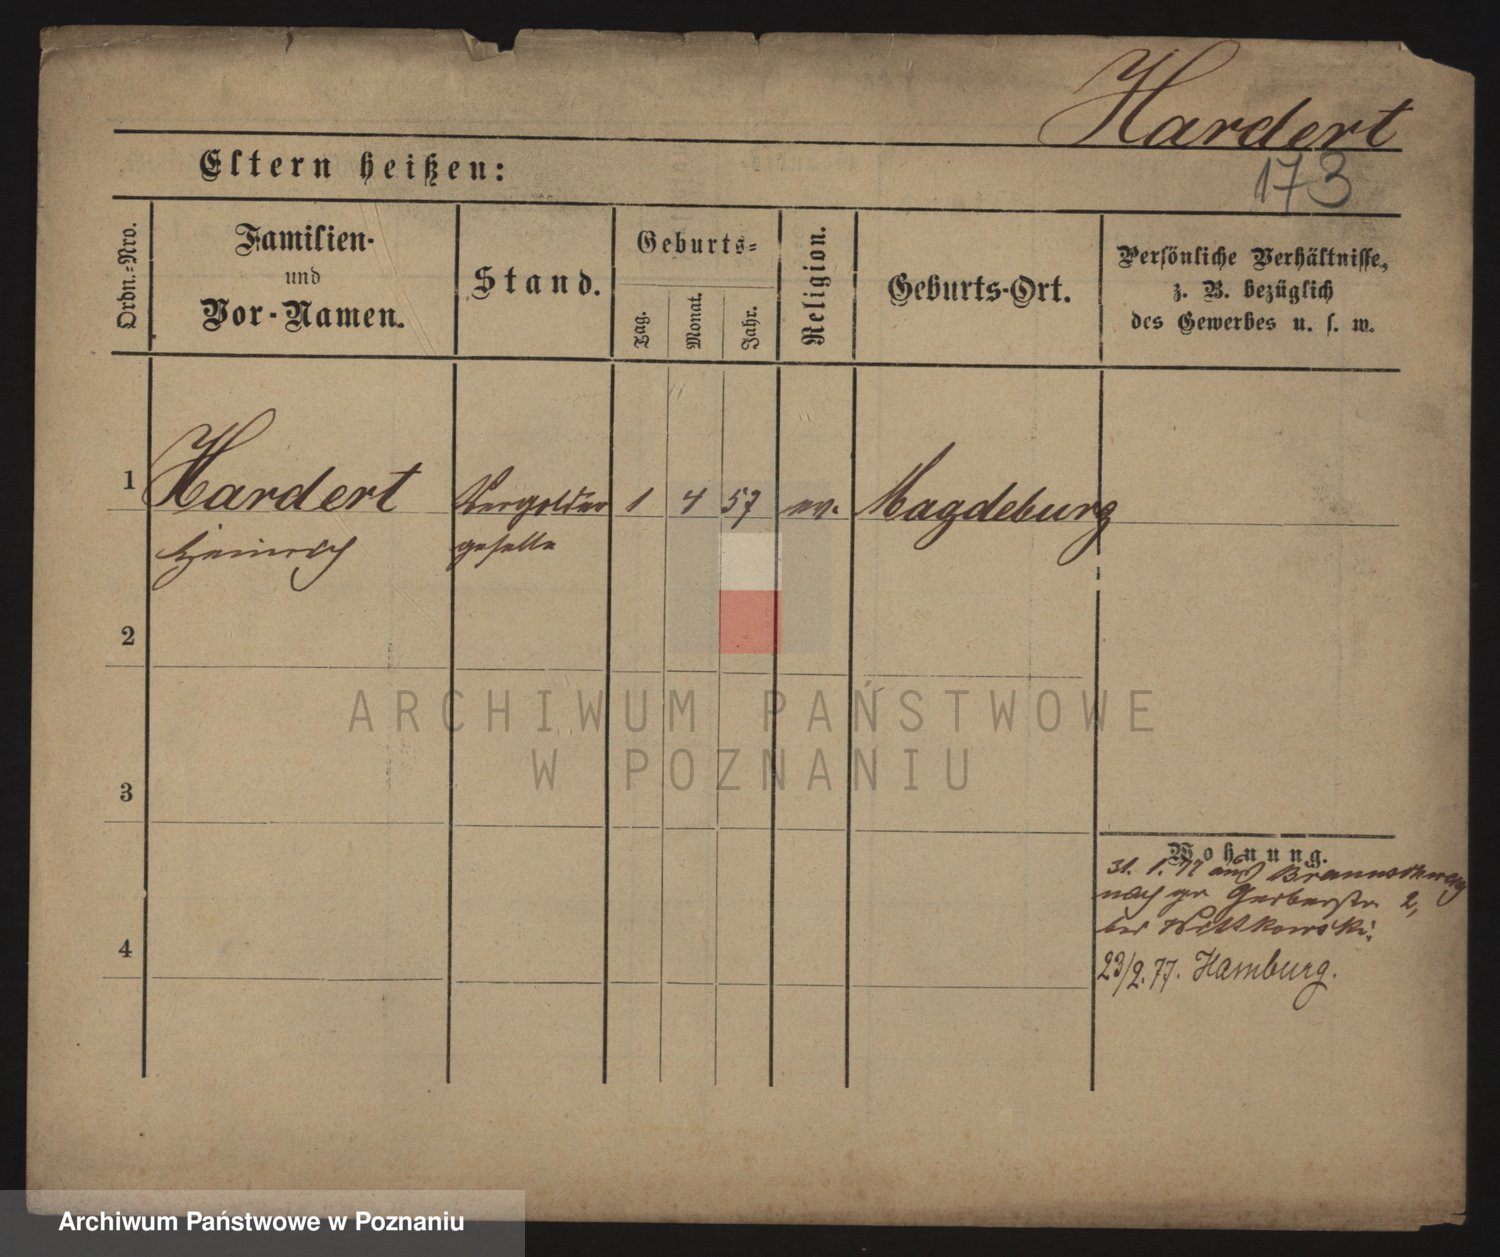 Hardert
173
Eltern heißen:
Ordn.-Nro.
Familien-
und
Vor-Namen.
Stand.
Geburts-
Tag.
Monat.
Jahr.
Religion.
Geburts-Ort.
Persönliche Verhältnisse,
z. B. bezüglich
des Gewerbes u. s. w.
1 Hardert Vergolder 1 4 57 ev. Magdeburg
Heinrich geselle
2
3
4
Wohnung.
31. 1. 77 aus Braunschweig
nach gr Gerberstr 2,
bei Wittkowski.
23/2. 77. Hamburg.
ARCHIWUM PAŃSTWOWE
W POZNANIU
Archiwum Państwowe w Poznaniu